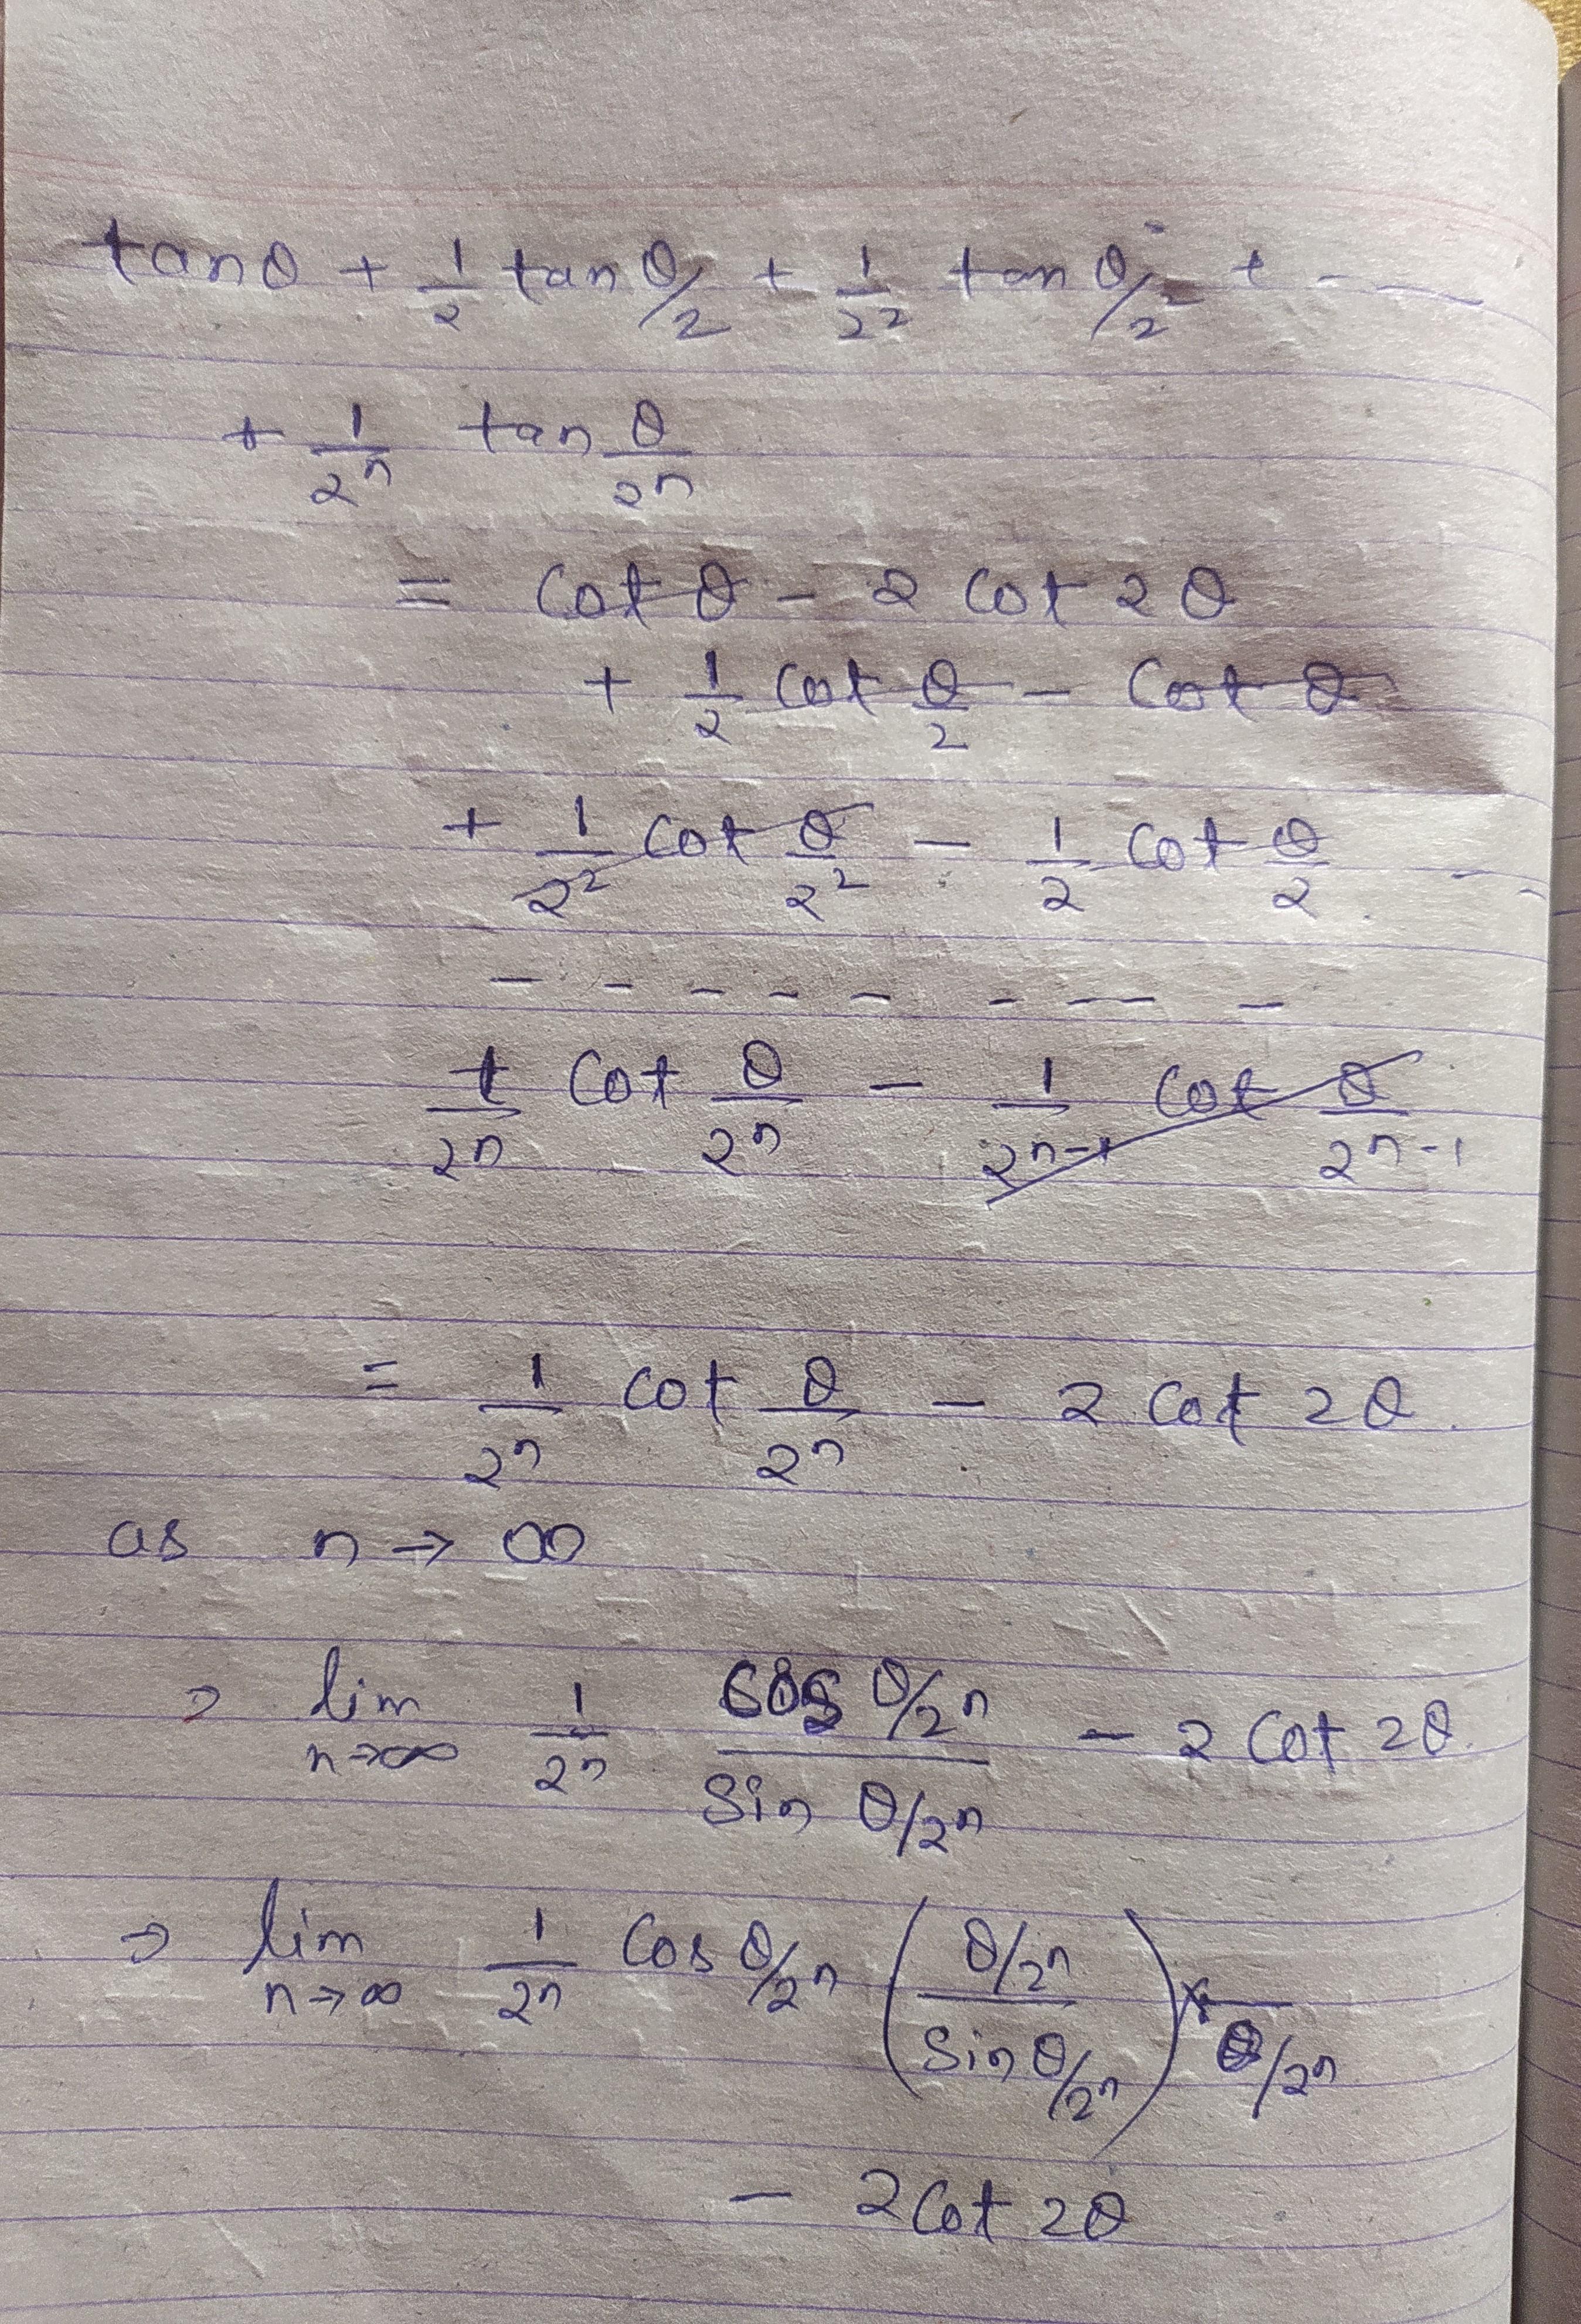 tanθ + 1/2 tan θ/2 + 1/2² tan θ/2² + - —
+ 1/2ⁿ tan θ/2ⁿ
= Cot θ - 2 Cot 2θ
+ 1/2 Cot θ/2 - Cot θ
+ 1/2² Cot θ/2² - 1/2 Cot θ/2 - -
- - - - - - - -
1/2ⁿ Cot θ/2ⁿ - 1/2ⁿ⁻¹ Cot θ/2ⁿ⁻¹
= 1/2ⁿ Cot θ/2ⁿ - 2 Cot 2θ.
as n → ∞
⇒ lim n→∞ 1/2ⁿ Cos θ/2ⁿ / Sin θ/2ⁿ - 2 Cot 2θ.
⇒ lim n→∞ 1/2ⁿ Cos θ/2ⁿ ( θ/2ⁿ / Sin θ/2ⁿ ) × — θ/2ⁿ
- 2 Cot 2θ